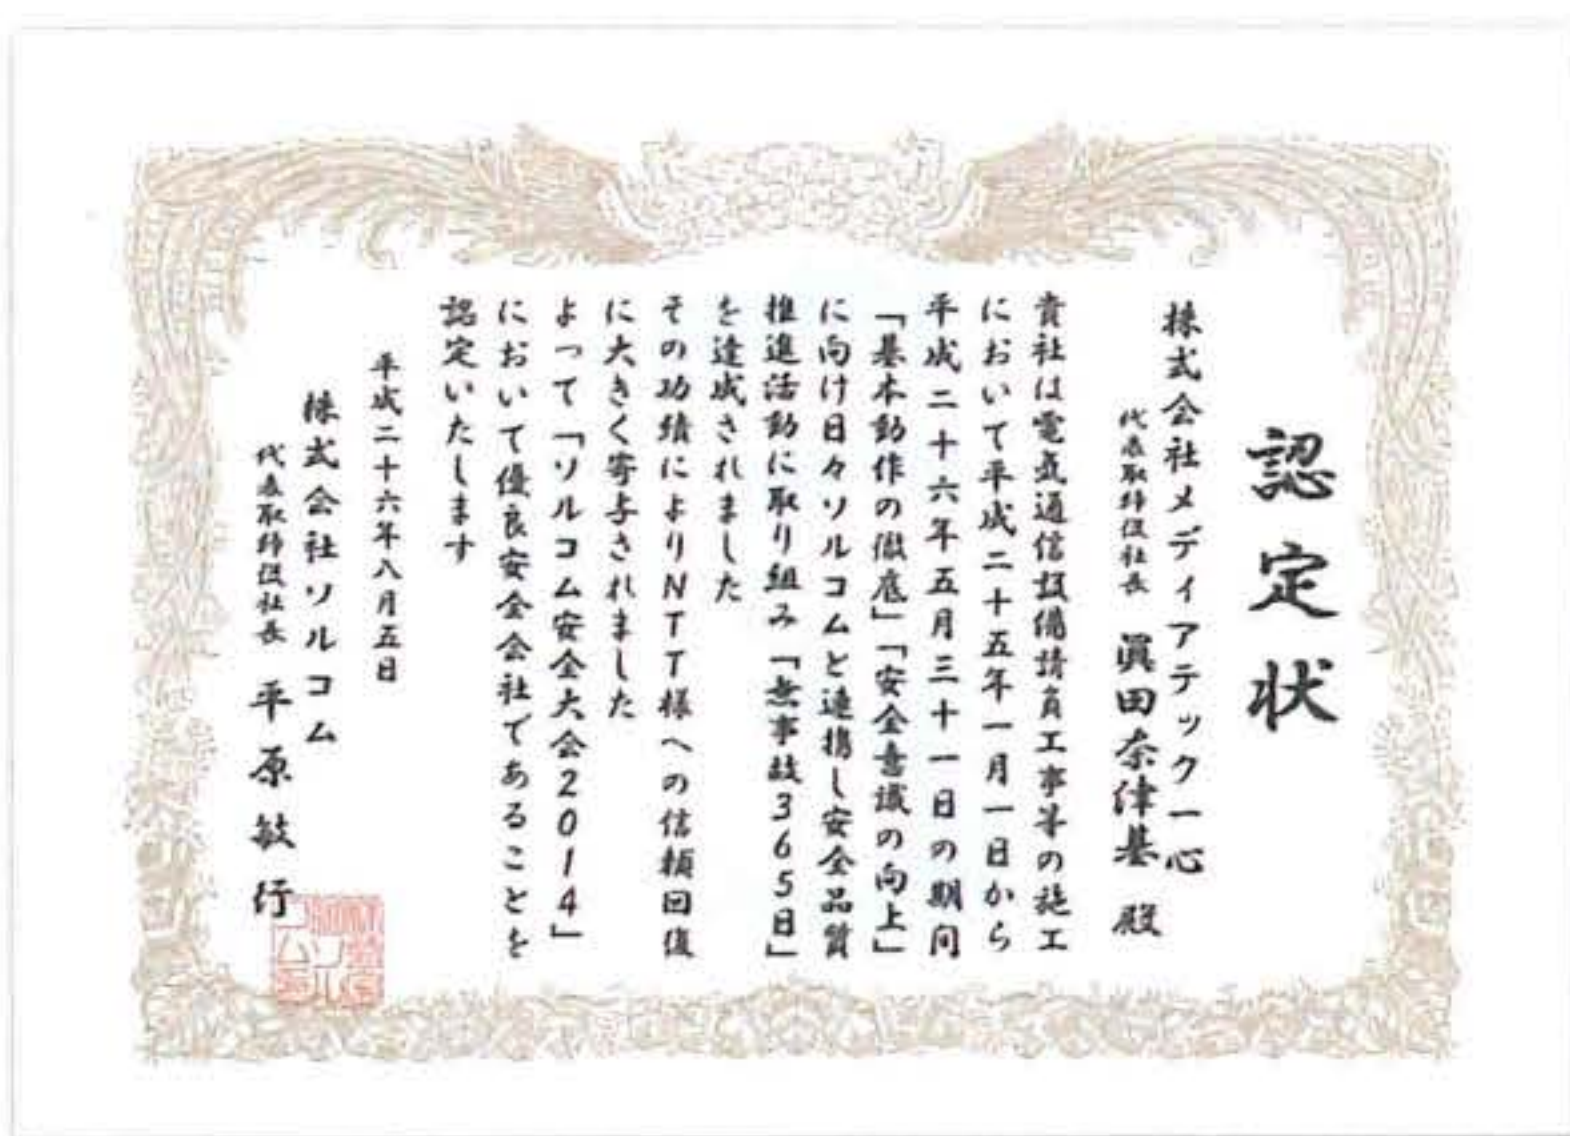 認定状
株式会社メディアテック一心
代表取締役社長 眞田奈津基 殿
貴社は電気通信設備請負工事等の施工
において平成二十五年一月一日から
平成二十六年五月三十一日の期間
「基本動作の徹底」「安全意識の向上」
に向け日々ソルコムと連携し安全品質
推進活動に取り組み「無事故365日」
を達成されました
その功績によりNTT様への信頼回復
に大きく寄与されました
よって「ソルコム安全大会2014」
において優良安全会社であることを
認定いたします
平成二十六年八月五日
株式会社ソルコム
代表取締役社長 平原敏行